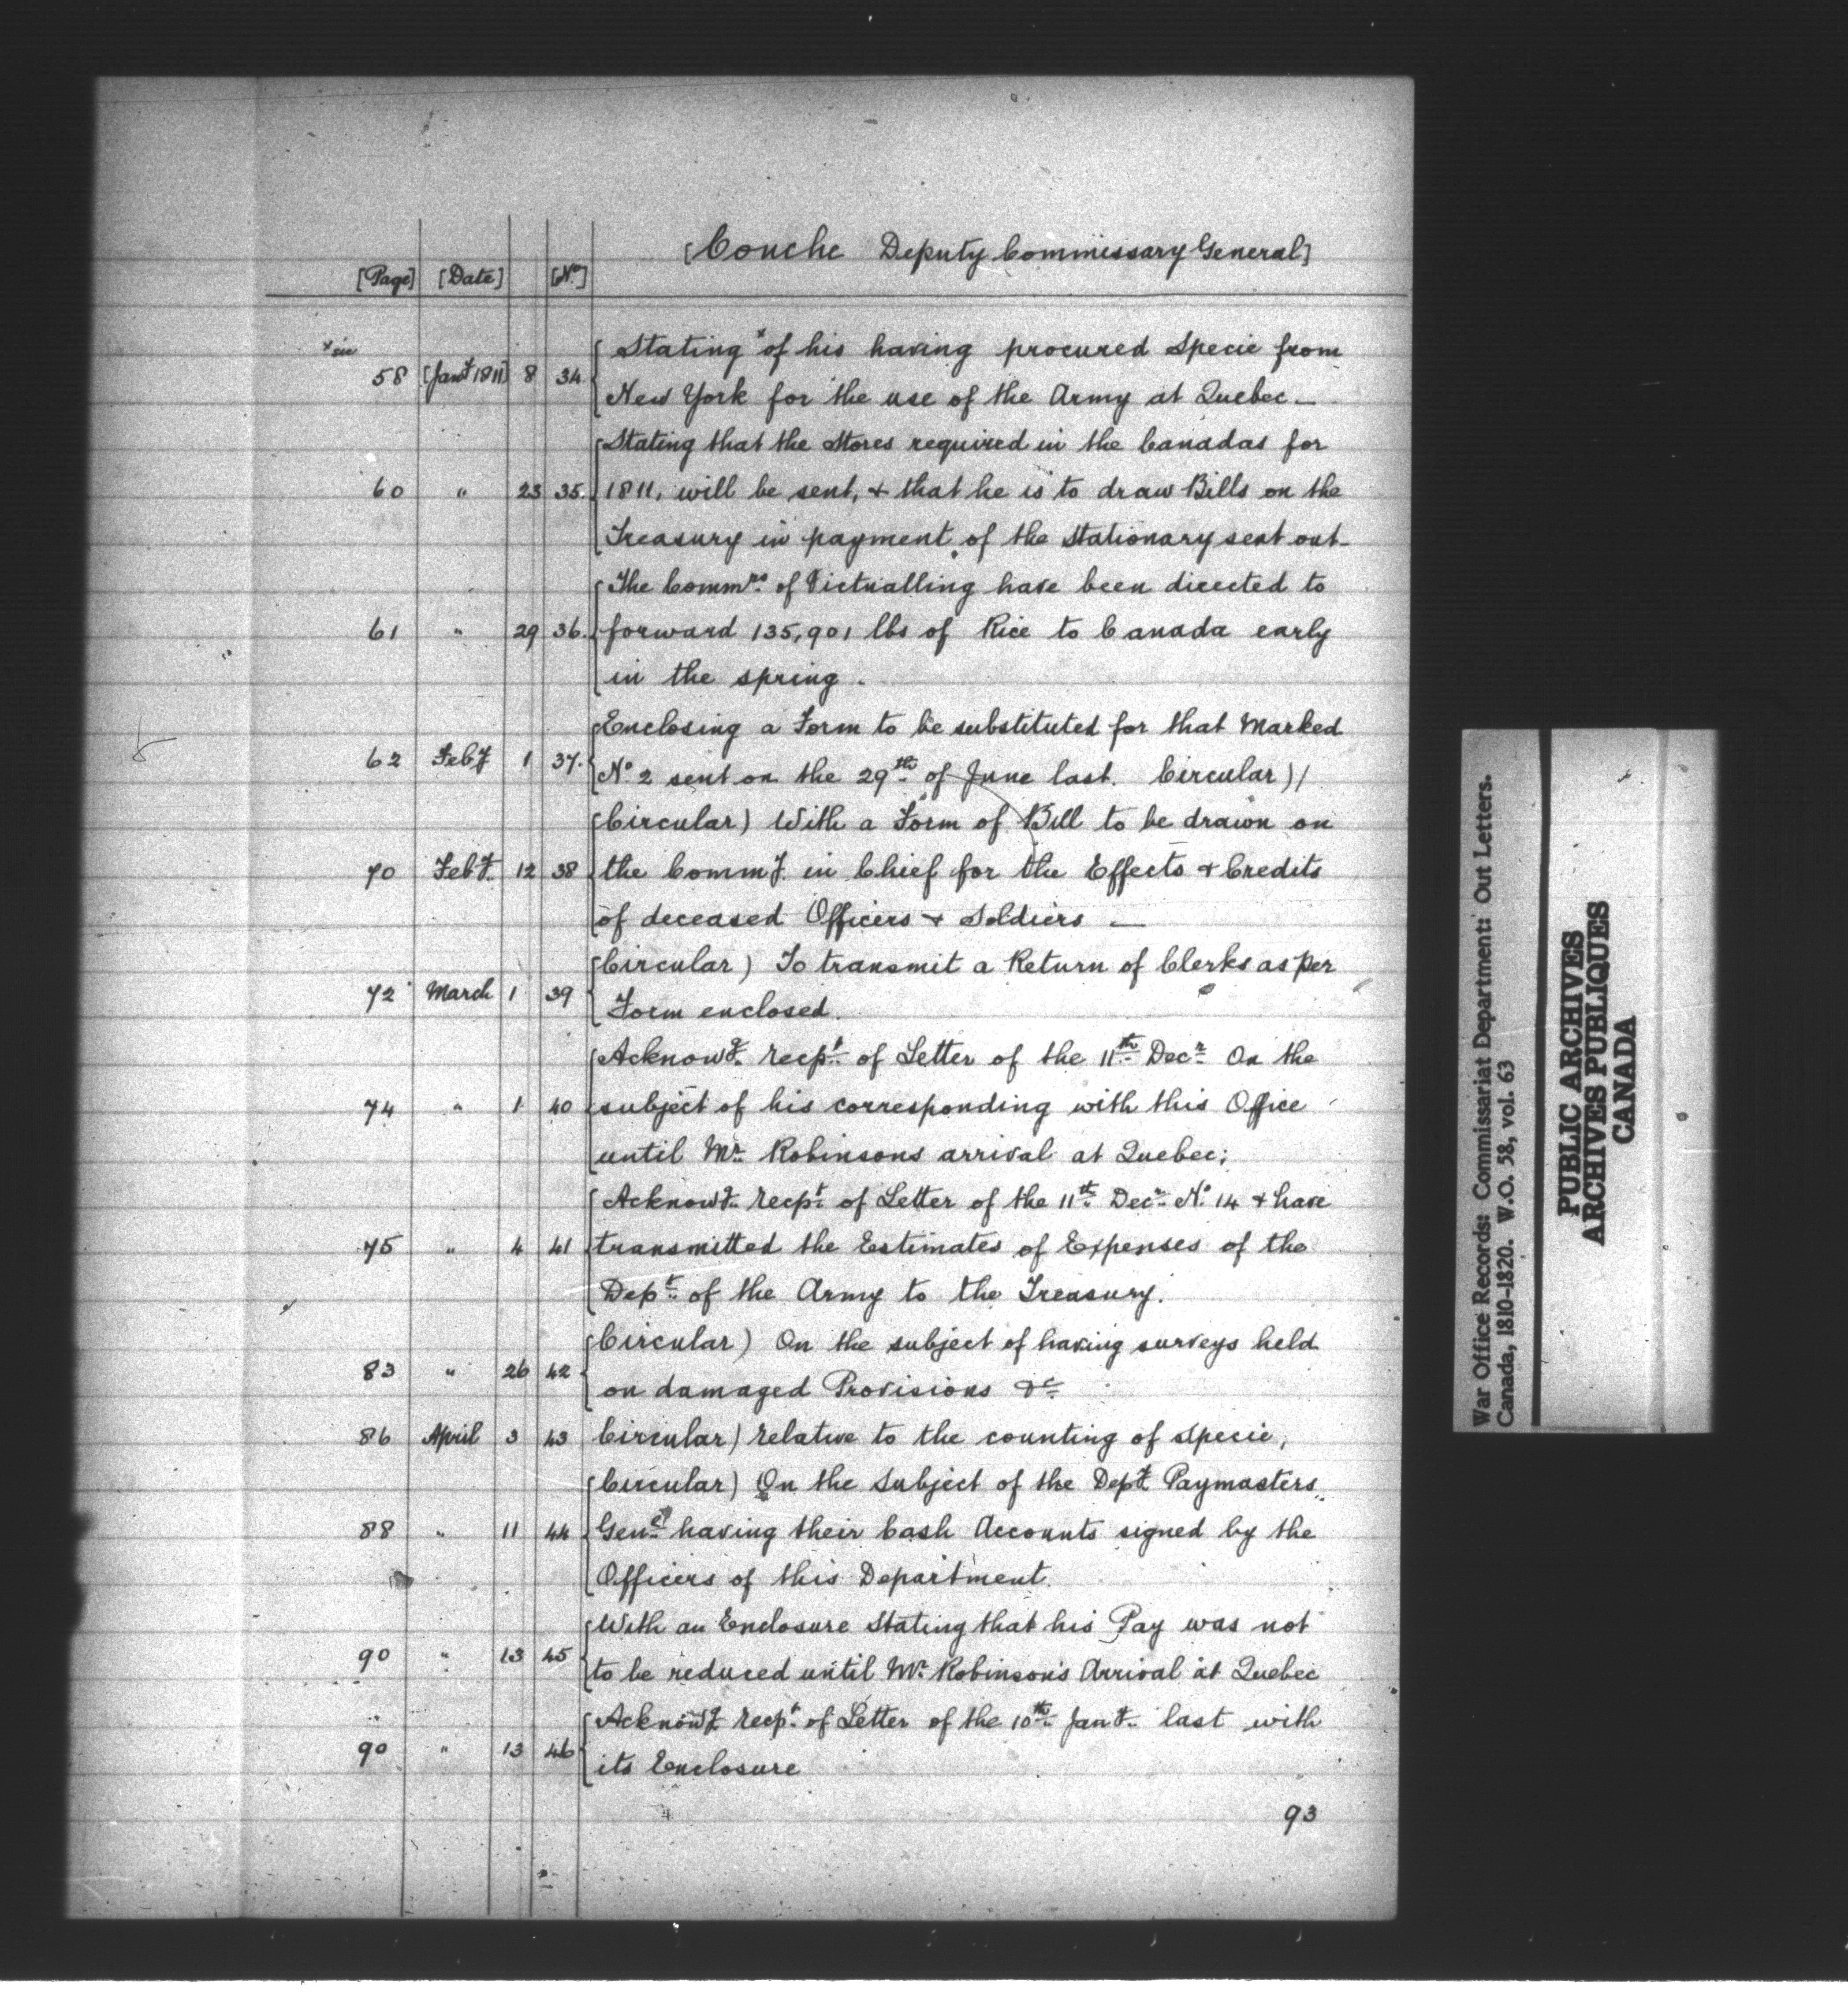 [Couche Deputy Commissary General]
[Page] [Date] [No]
x sic
Stating x of his having procured Specie from
58 [Jany 1811] 8 34. New York for the use of the Army at Quebec —
Stating that the Stores required in the Canadas for
60 " 23 35. 1811, will be sent, & that he is to draw Bills on the
Treasury in payment of the Stationary sent out —
The Commrs of Victualling have been directed to
61 " 29 36. forward 135,901 lbs of Rice to Canada early
in the spring.
Enclosing a Form to be substituted for that Marked
62 Feby 1 37. No 2 sent on the 29th of June last. Circular)/
Circular) With a Form of Bill to be drawn on
70 Feby 12 38 the Commy in Chief for the Effects & Credits
of deceased Officers & Soldiers —
Circular) To transmit a Return of Clerks as per
72 March 1 39 Form enclosed.
Acknowg recpt of Letter of the 11th Decr On the
74 " 1 40 subject of his corresponding with this Office
until Mr Robinsons arrival at Quebec;
Acknowg recpt of Letter of the 11th Decr No 14 & have
75 " 4 41 transmitted the Estimates of Expenses of the
Dept of the Army to the Treasury.
Circular) On the subject of having surveys held
83 " 26 42 on damaged Provisions &c
86 April 3 43 Circular) relative to the counting of specie,
Circular) On the Subject of the Depy Paymasters
88 " 11 44 Genl having their Cash Accounts signed by the
Officers of this Department.
With an Enclosure Stating that his Pay was not
90 " 13 45 to be reduced until Mr Robinson's Arrival at Quebec
Acknowg recpt of Letter of the 10th Jany last with
90 " 13 46 its Enclosure
93
War Office Records: Commissariat Department: Out Letters.
Canada, 1810-1820. W.O. 58, vol. 63
PUBLIC ARCHIVES
ARCHIVES PUBLIQUES
CANADA